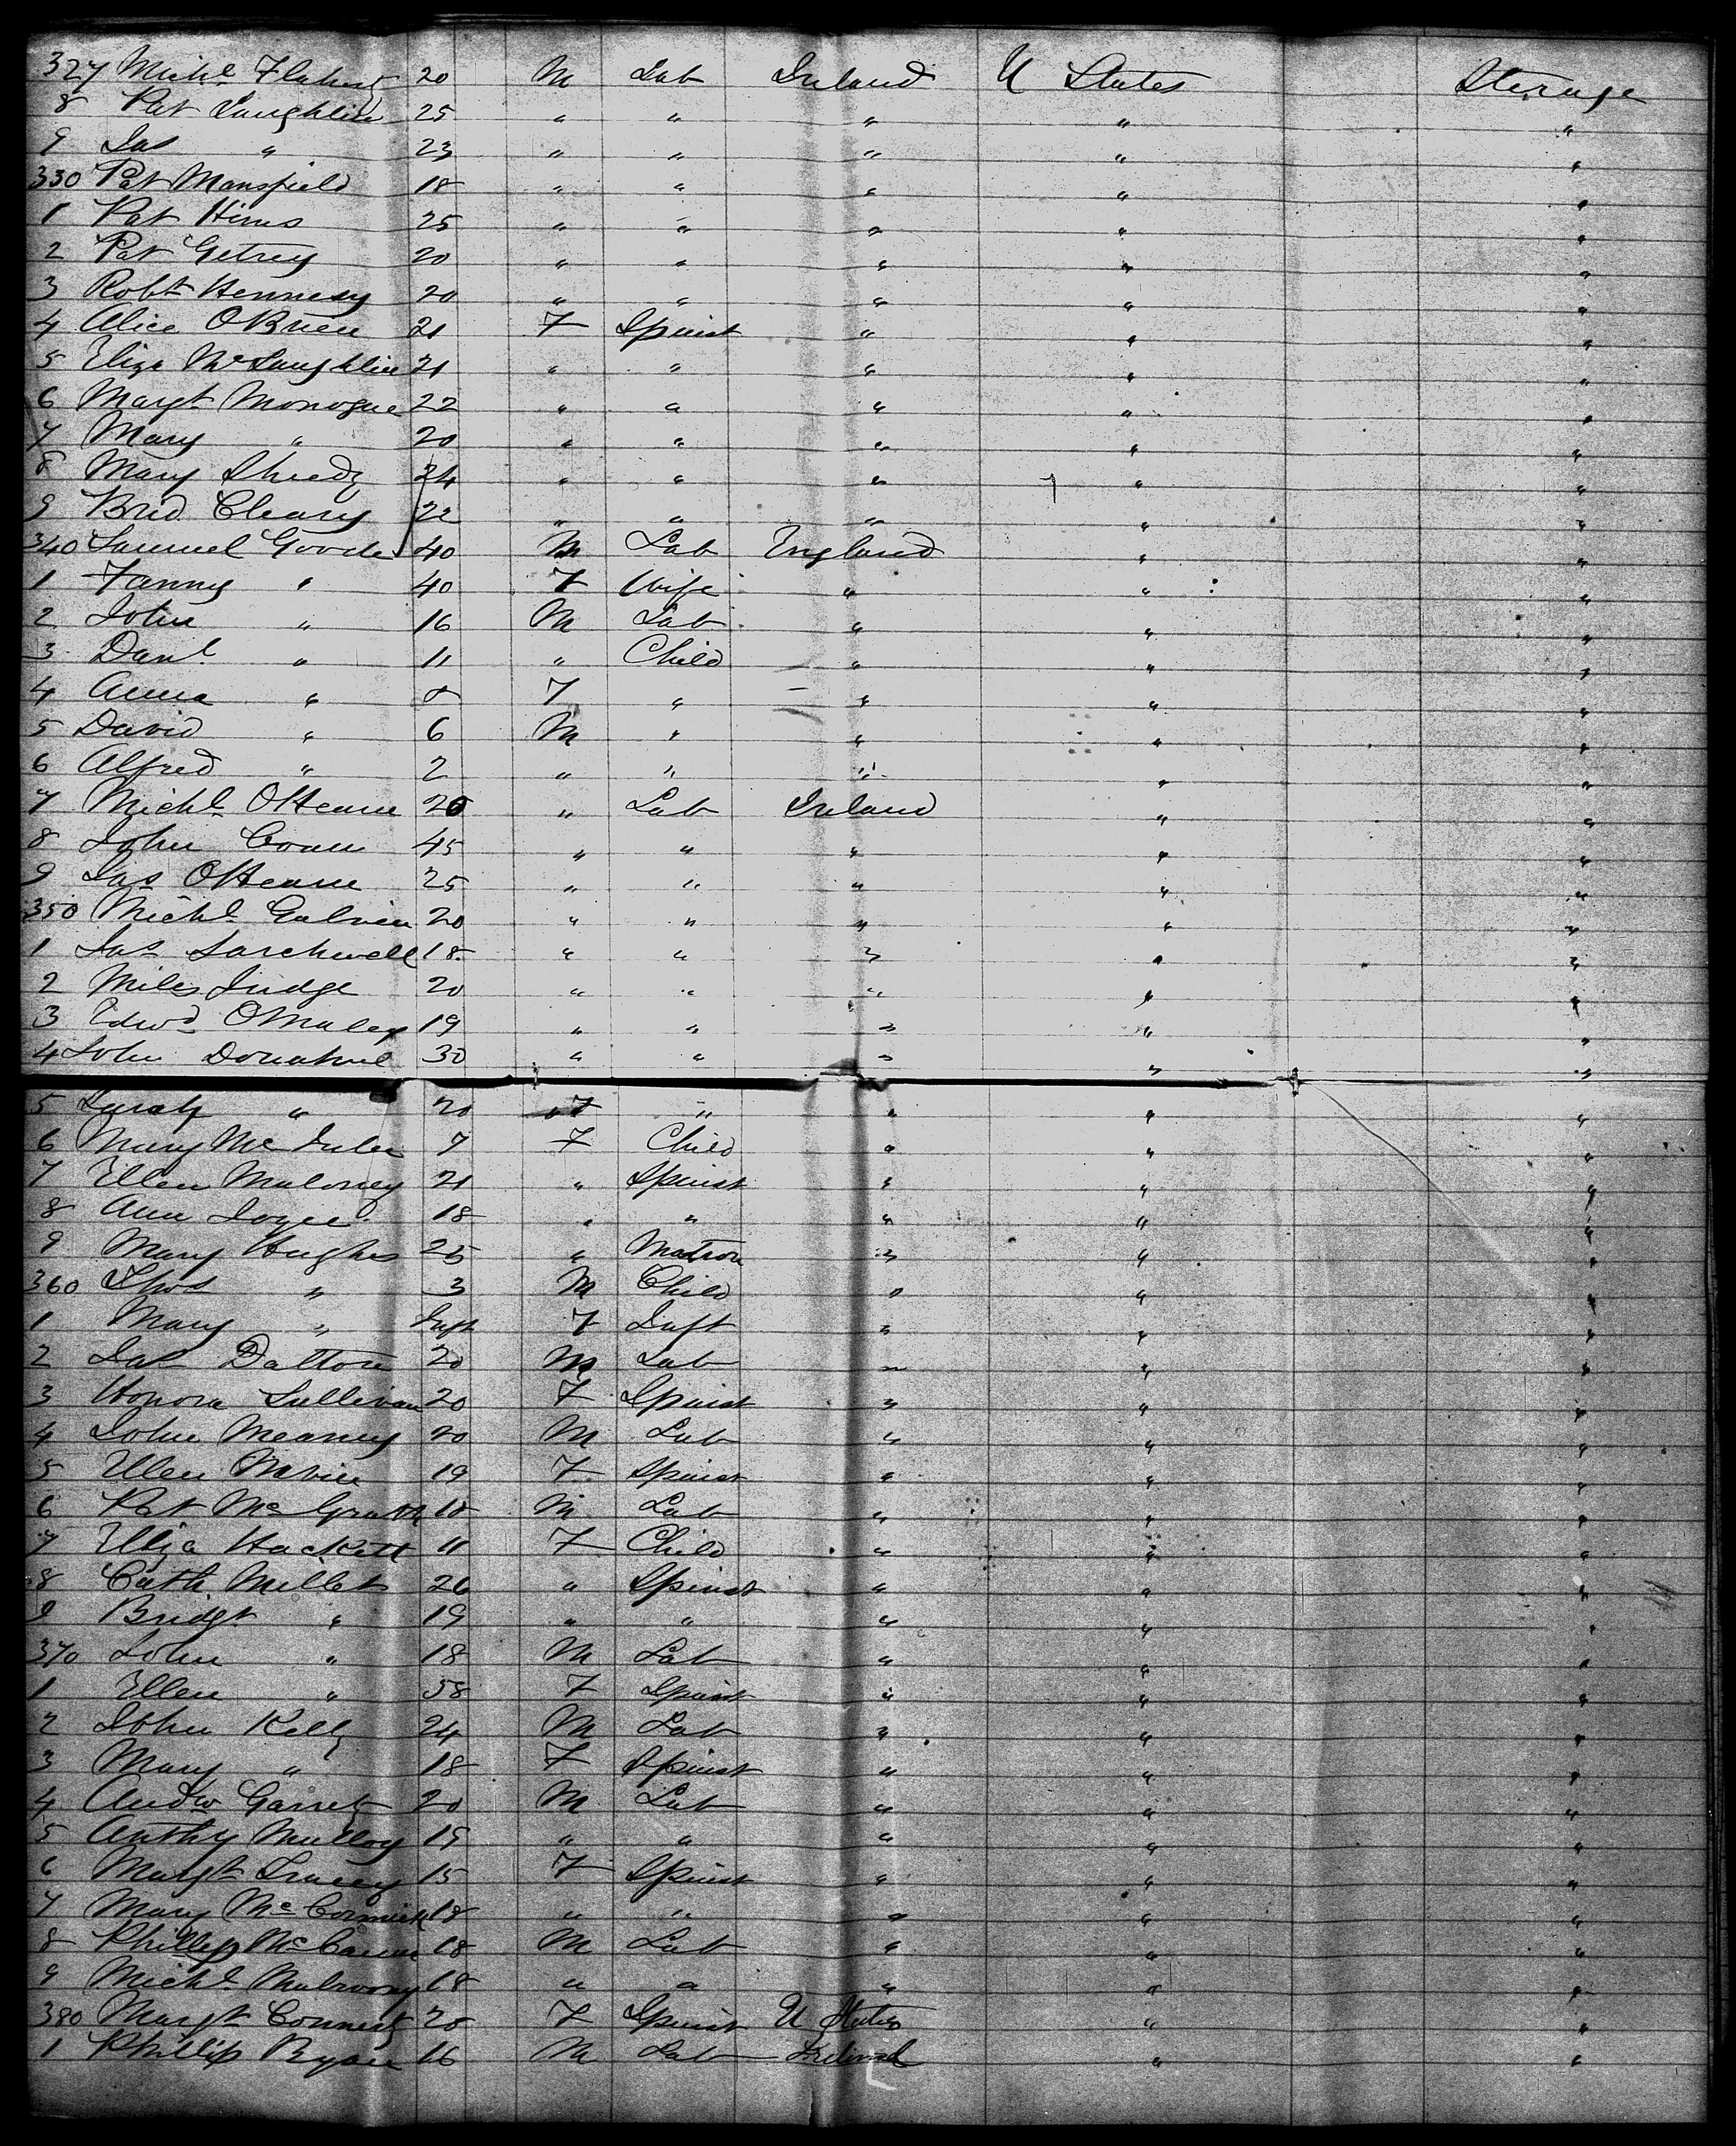 327 Michl Flaherty 20 M Lab Ireland U States Sterage
8 Pat Laughlin 25 " " " " "
9 Jas " 23 " " " " "
330 Pat Mansfield 18 " " " " "
1 Pat Hines 25 " " " " "
2 Pat 20 " " " " "
3 Robt Hennesy 20 " " " " "
4 Alice OBrien 21 F Spinst " " "
5 Eliza McLaughlin 21 " " " " "
6 Margt Monogue 22 " " " " "
7 Mary " 20 " " " " "
8 Mary Sheedy 24 " " " " "
9 Brid Cleary 22 " " " " "
340 Samuel Goode 40 M Lab England " "
1 Fanny " 40 F Wife " " "
2 John " 16 M Lab " " "
3 Danl " 11 " Child " " "
4 Anna " 8 F " " " "
5 David " 6 M " " " "
6 Alfred " 2 " " " " "
7 Michl OHearn 20 " Lab Ireland " "
8 John 45 " " " " "
9 Jas OHearn 25 " " " " "
350 Michl Galvin 20 " " " " "
1 Jas 18 " " " " "
2 Miles Judge 20 " " " " "
3 Edwd OMaley 19 " " " " "
4 John Donahue 30 " " " " "
5 Sarah " 20 F " " " "
6 Mary 7 F Child " " "
7 Ellen Maloney 21 " Spinst " " "
8 Ann Joyce 18 " " " " "
9 Mary Hughes 25 " Matron " " "
360 Thos " 3 M Child " " "
1 Mary " Inft F Inft " " "
2 Jas Dalton 20 M Lab " " "
3 Honora Sullivan 20 F Spinst " " "
4 John Meaney 20 M Lab " " "
5 Ellen 19 F Spinst " " "
6 Pat McGrath 18 M Lab " " "
7 Eliza Hackett 11 F Child " " "
8 Cath Millet 26 " Spinst " " "
9 Bridgt " 19 " " " " "
370 John " 18 M Lab " " "
1 Ellen " 58 F Spinst " " "
2 John Kelly 24 M Lab " " "
3 Mary " 18 F Spinst " " "
4 Andw 20 M Lab " " "
5 Anthy Mulloy 19 " " " " "
6 Margt Tracey 15 F Spinst " " "
7 Mary McCormick 18 " " " " "
8 Phillip McCann 18 M Lab " " "
9 Michl Mulroony 18 " " " " "
380 Margt 20 F Spinst U States " "
1 Phillip Ryan 16 M Lab Ireland " "